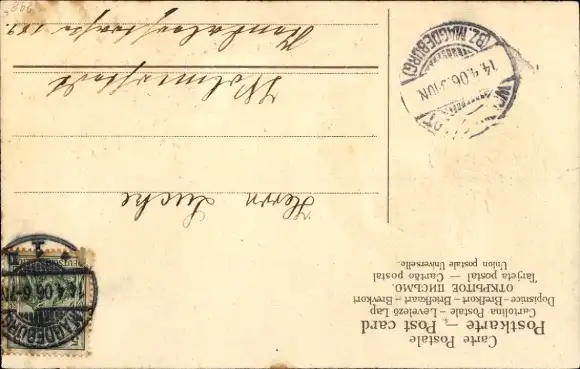 Carte Postale
Postkarte – Post card
Cartolina Postale – Levelező Lap
Dopisnice – Brefkort – Briefkaart – Brevkort
ОТКРЫТОЕ ПИСЬМО.
Tarjeta postal — Cartão postal
Union postale Universelle.
MAGDEBURG
14.4.06.6-7
Herrn Lucke
Wolmirstedt
(BZ. MAGDEBURG)
14.4.06. 9-10N